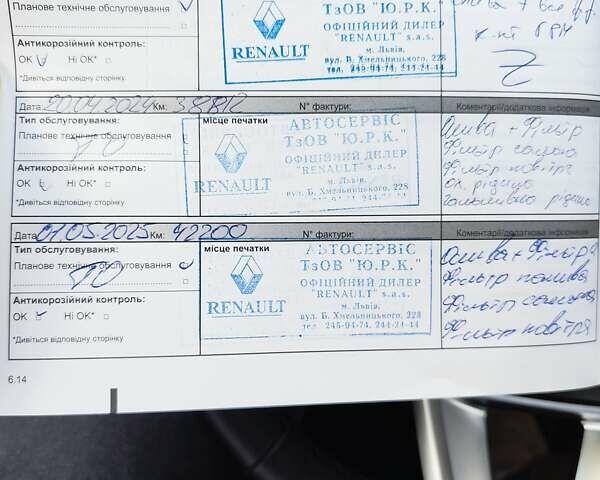 Планове технічне обслуговування
Антикорозійний контроль:
ОК Ні ОК*
*Дивіться відповідну сторінку
RENAULT
ТзОВ "Ю.Р.К."
ОФІЦІЙНИЙ ДИЛЕР
"RENAULT" s.a.s.
м. Львів,
вул. Б. Хмельницького, 228
тел. 245-94-74, 244-21-44
к-кт ГРМ
Дата: 20.04.2024 Км: 38812 N° фактури: Коментарі/додаткова інформація
Тип обслуговування:
Планове технічне обслуговування
ТО
Антикорозійний контроль:
ОК Ні ОК*
*Дивіться відповідну сторінку
місце печатки
АВТОСЕРВІС
ТзОВ "Ю.Р.К."
ОФІЦІЙНИЙ ДИЛЕР
"RENAULT" s.a.s.
м. Львів,
вул. Б. Хмельницького, 228
RENAULT
Олива + Фільтр
Фільтр салону
Фільтр повітря
ох. рідина
гальмівна рідина
Дата: 01.05.2025 Км: 42200 N° фактури: Коментарі/додаткова інформація
Тип обслуговування:
Планове технічне обслуговування
ТО
Антикорозійний контроль:
ОК Ні ОК*
*Дивіться відповідну сторінку
місце печатки
АВТОСЕРВІС
ТзОВ "Ю.Р.К."
ОФІЦІЙНИЙ ДИЛЕР
"RENAULT" s.a.s.
м. Львів,
вул. Б. Хмельницького, 228
тел. 245-94-74, 244-21-44
RENAULT
Олива + Фільтр
Фільтр палива
Фільтр салону
Фільтр повітря
6.14